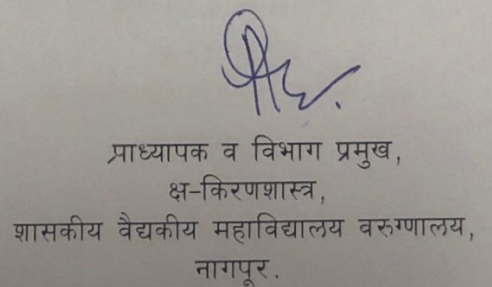 प्राध्यापक व विभाग प्रमुख,
क्ष-किरणशास्त्र,
शासकीय वैद्यकीय महाविद्यालय वरुग्णालय,
नागपूर.